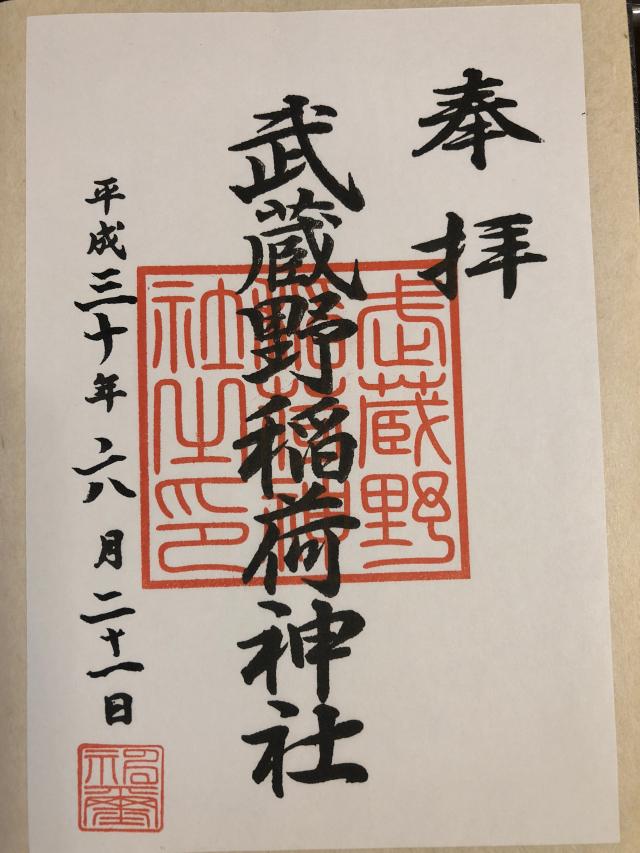 奉拝
武蔵野稲荷神社
武蔵野稲荷神社之印
平成三十年六月二十一日